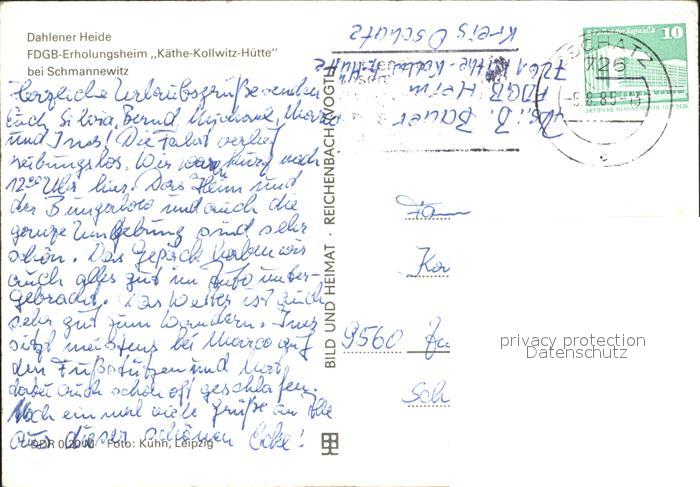 Dahlener Heide
FDGB-Erholungsheim „Käthe-Kollwitz-Hütte"
bei Schmannewitz
Herzliche Urlaubsgrüße senden
Euch Silvia, Bernd, Marco
und Ines! Die Fahrt verlief
reibungslos. Wir waren kurz nach
12⁰⁰ Uhr hier. Das Heim und
der Bungalow und auch die
ganze Umgebung sind sehr
schön. Das Gepäck haben wir
auch alles gut im Auto unter-
gebracht. Das Wetter ist auch
sehr gut zum Wandern. Ines
sitzt meistens bei Marco auf
den Fußstützen und hat
dabei auch schon oft geschlafen.
Noch einmal viele Grüße an Alle
aus dieser schönen Ecke!
DDR Foto: Kühn, Leipzig
BILD UND HEIMAT · REICHENBACH (VOGTL)
Abs.: B. Bauer
FDGB Heim
7261 Käthe-Kollwitz-Hütte
Kreis Oschatz
OSCHATZ
726
10
Fam
9560
privacy protection
Datenschutz